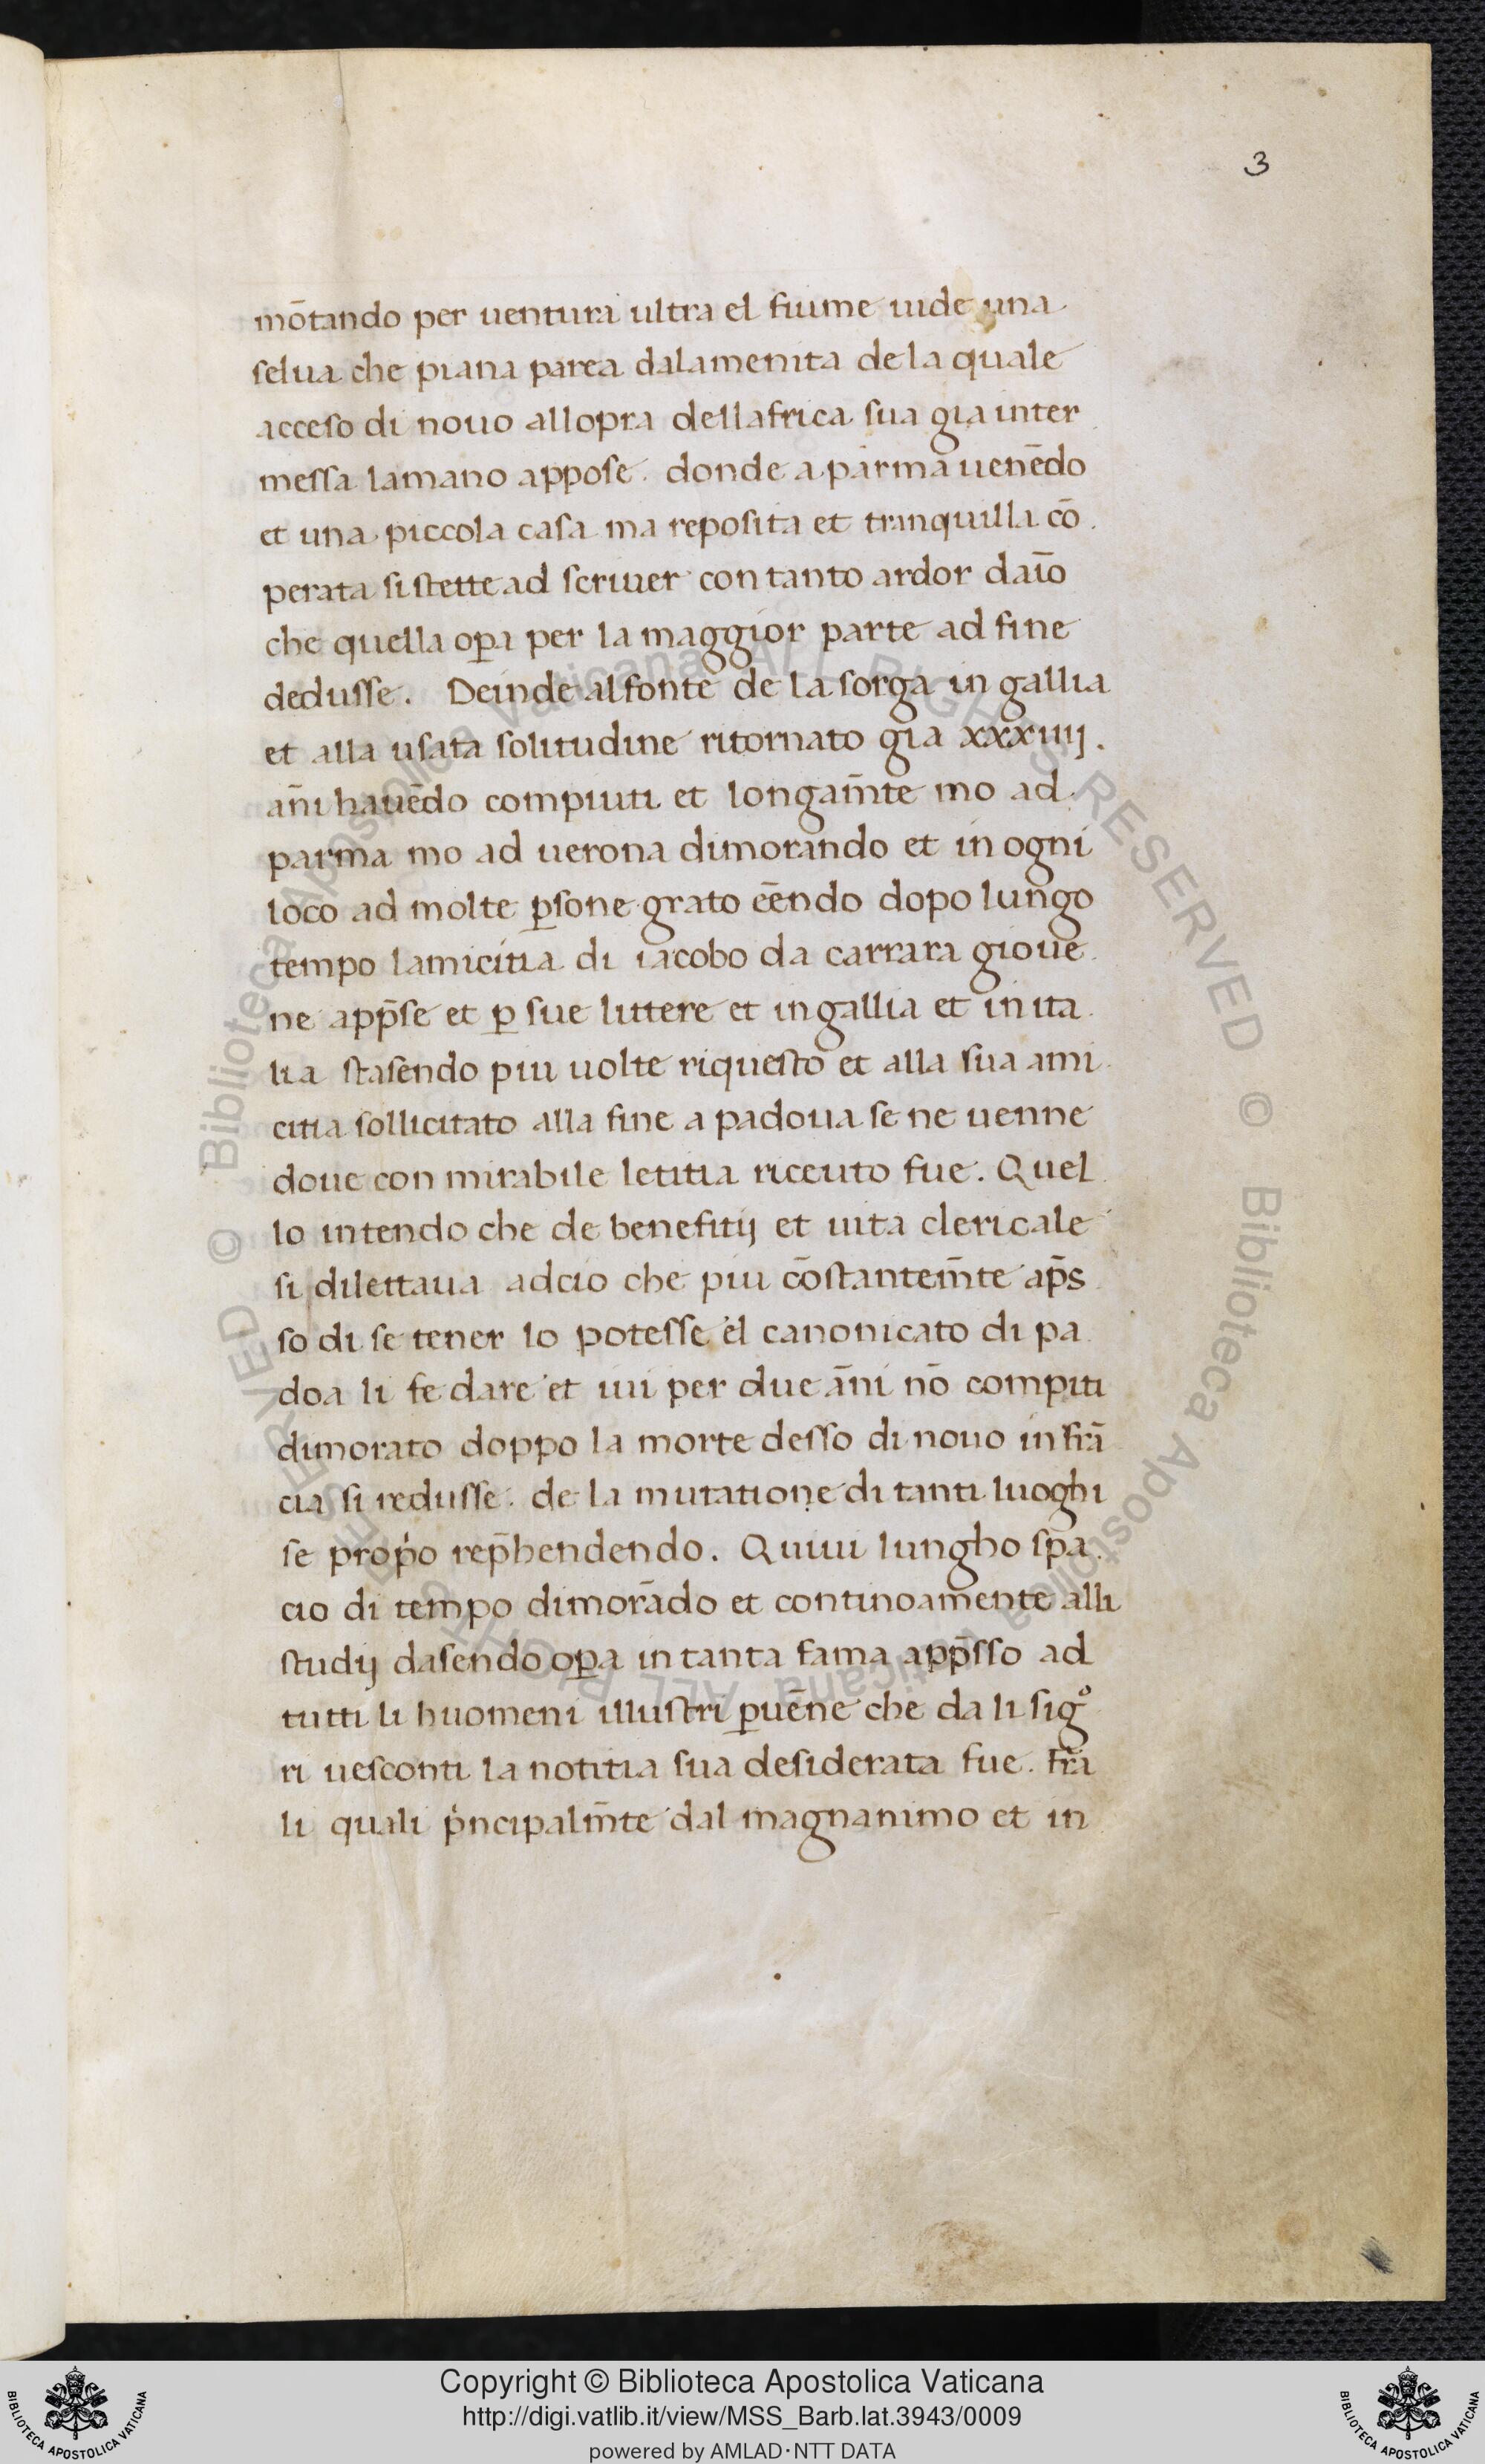 3
mōtando per uentura ultra el fiume uide una
selua che piana parea dalamenita de la quale
acceso di nouo allopra dellafrica sua gia inter
messa lamano appose. donde a parma uenēdo
et una piccola casa ma reposita et tranquilla cō
perata si stette ad scriuer con tanto ardor daīo
che quella oꝑa per la maggior parte ad fine
dedusse. Deinde al fonte de la sorga in gallia
et alla usata solitudine ritornato gia xxxiiij.
an̄i hauēdo compiuti et longam̄te mo ad
parma mo ad uerona dimorando et in ogni
loco ad molte ꝑsone grato eēndo dopo lungo
tempo lamicitia di iacobo da carrara gioue
ne app̄se et ꝑ sue littere et in gallia et in ita
lia stasendo piu uolte riquesto et alla sua ami
citia sollicitato alla fine a padoua se ne uenne
doue con mirabile letitia riceuto fue. Quel
lo intendo che de benefitij et uita clericale
si dilettaua adcio che piu cōstantem̄te ap̄s
so di se tener lo potesse el canonicato di pa
doa li fe dare et iui per due ān̄i nō compiti
dimorato doppo la morte desso di nouo in frā
cia si redusse. de la mutatione di tanti luoghi
se prop̍o rep̄hendendo. Quiui lungho spa
cio di tempo dimorādo et continoamente alli
studij dasendo oꝑa in tanta fama app̄sso ad
tutti li huomeni illustri ꝑuēne che da li sigͦ
ri uesconti la notitia sua desiderata fue. fra
li quali p̍ncipalm̄te dal magnanimo et in
Copyright © Biblioteca Apostolica Vaticana
http://digi.vatlib.it/view/MSS_Barb.lat.3943/0009
powered by AMLAD·NTT DATA
BIBLIOTECA APOSTOLICA VATICANA
BIBLIOTECA APOSTOLICA VATICANA
© Biblioteca Apostolica Vaticana ALL RIGHTS RESERVED © Biblioteca Apostolica Vaticana ALL RIGHTS RESERVED